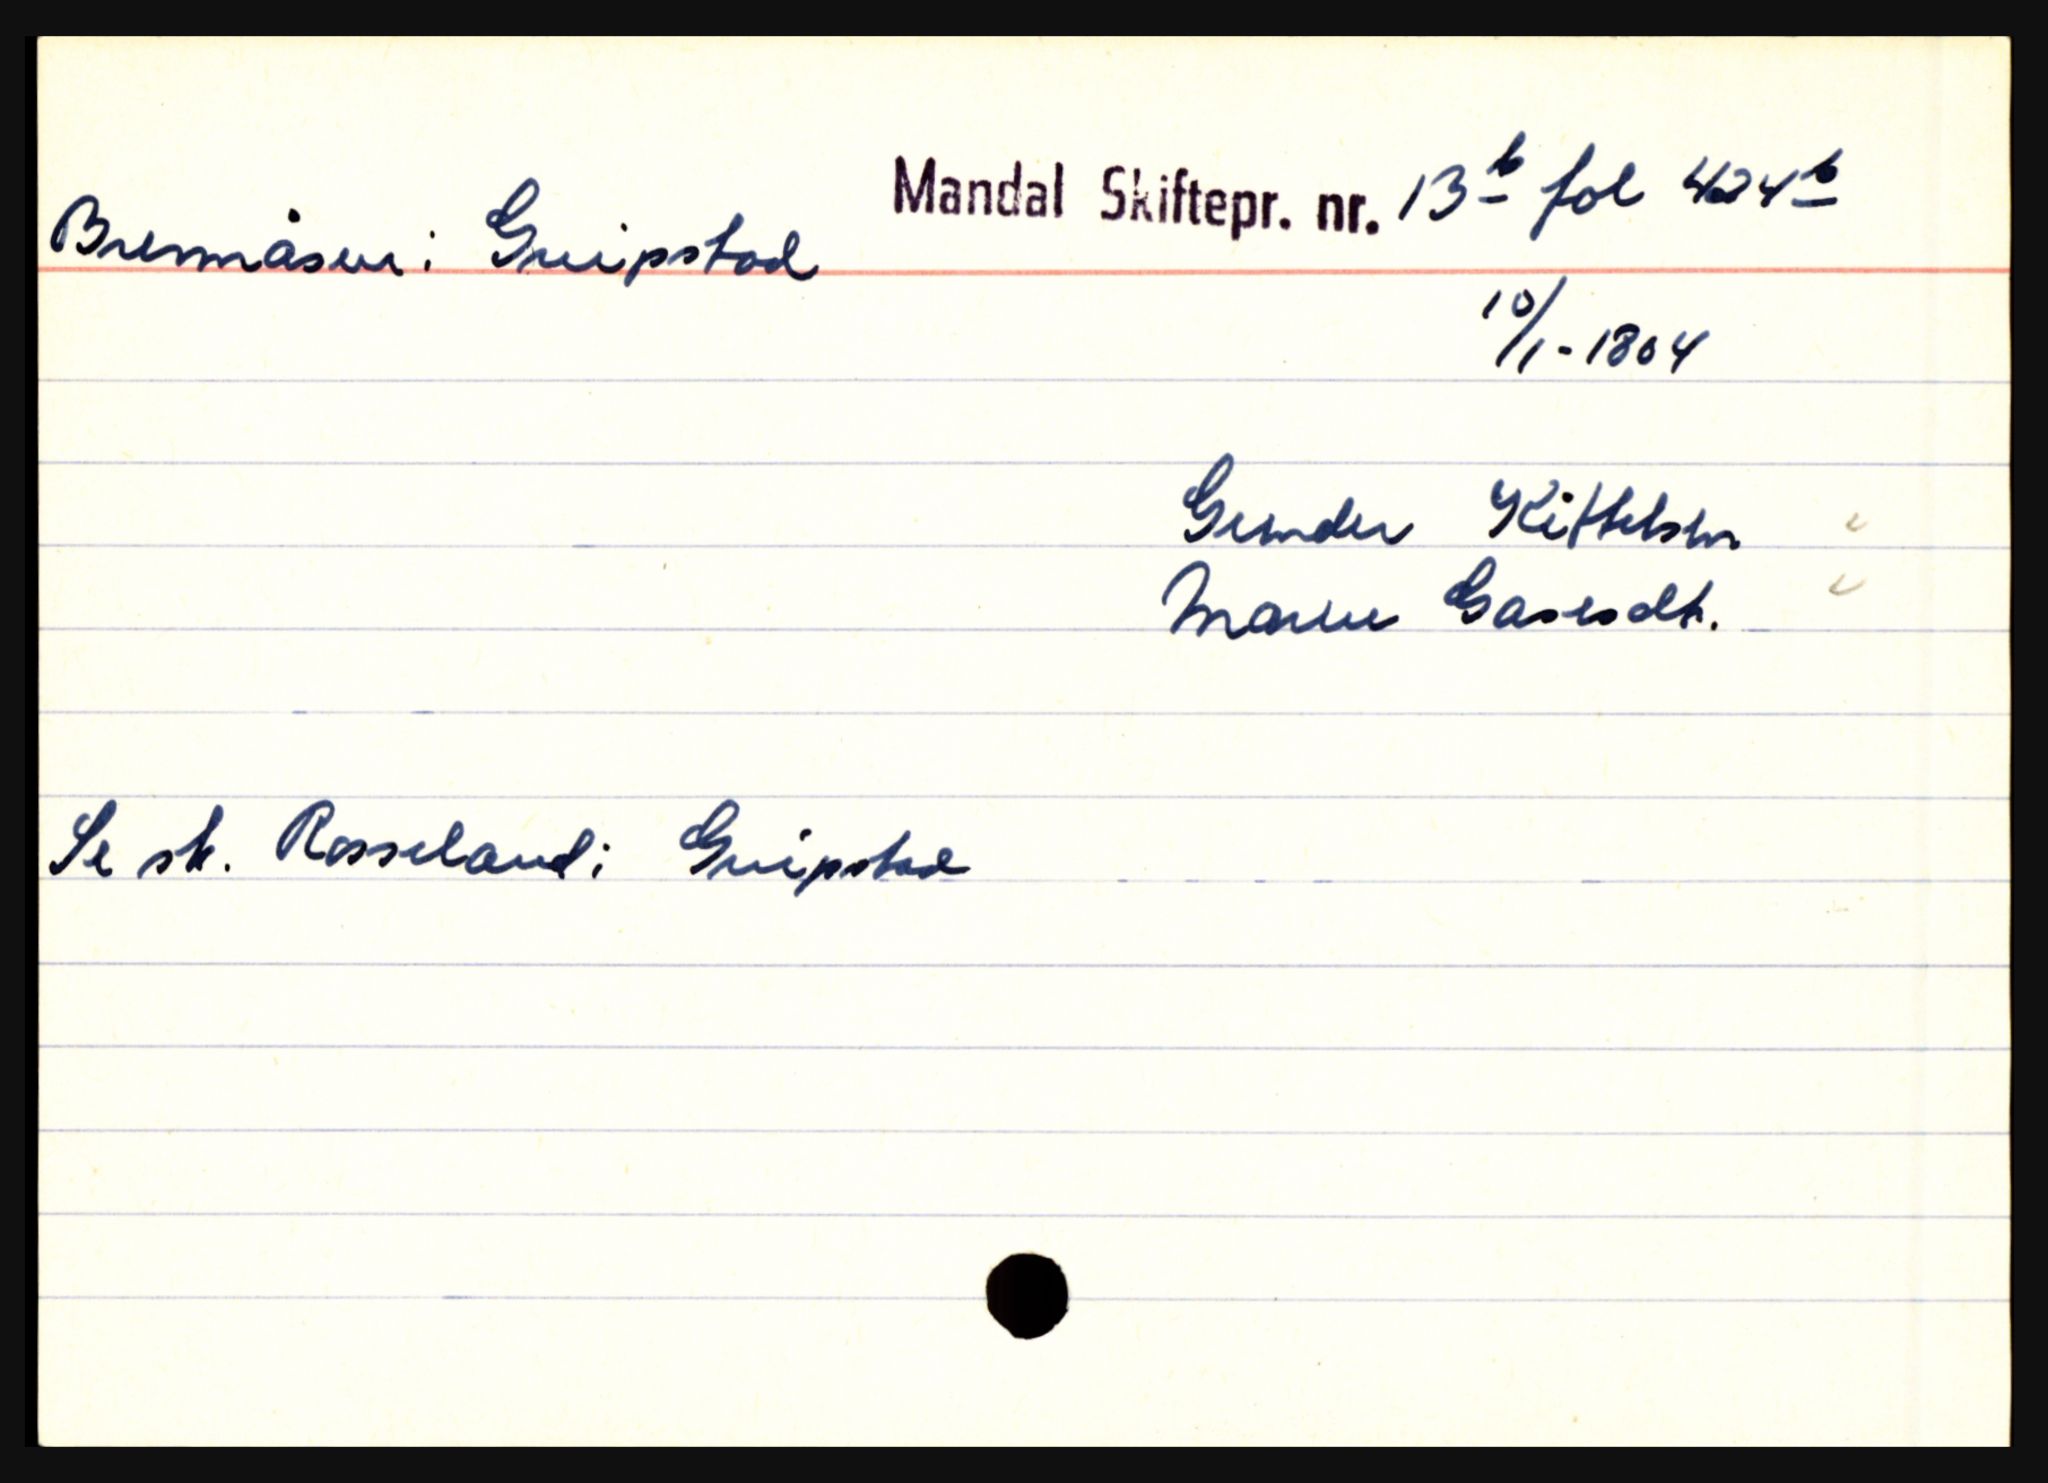 Mandal Skiftepr. nr. 13 b fol 424 b
Brennåsen i Greipstad
10/1-1804
Gunder Kittelsen
Maren Gasesdt.
Se sk. Rosseland i Greipstad